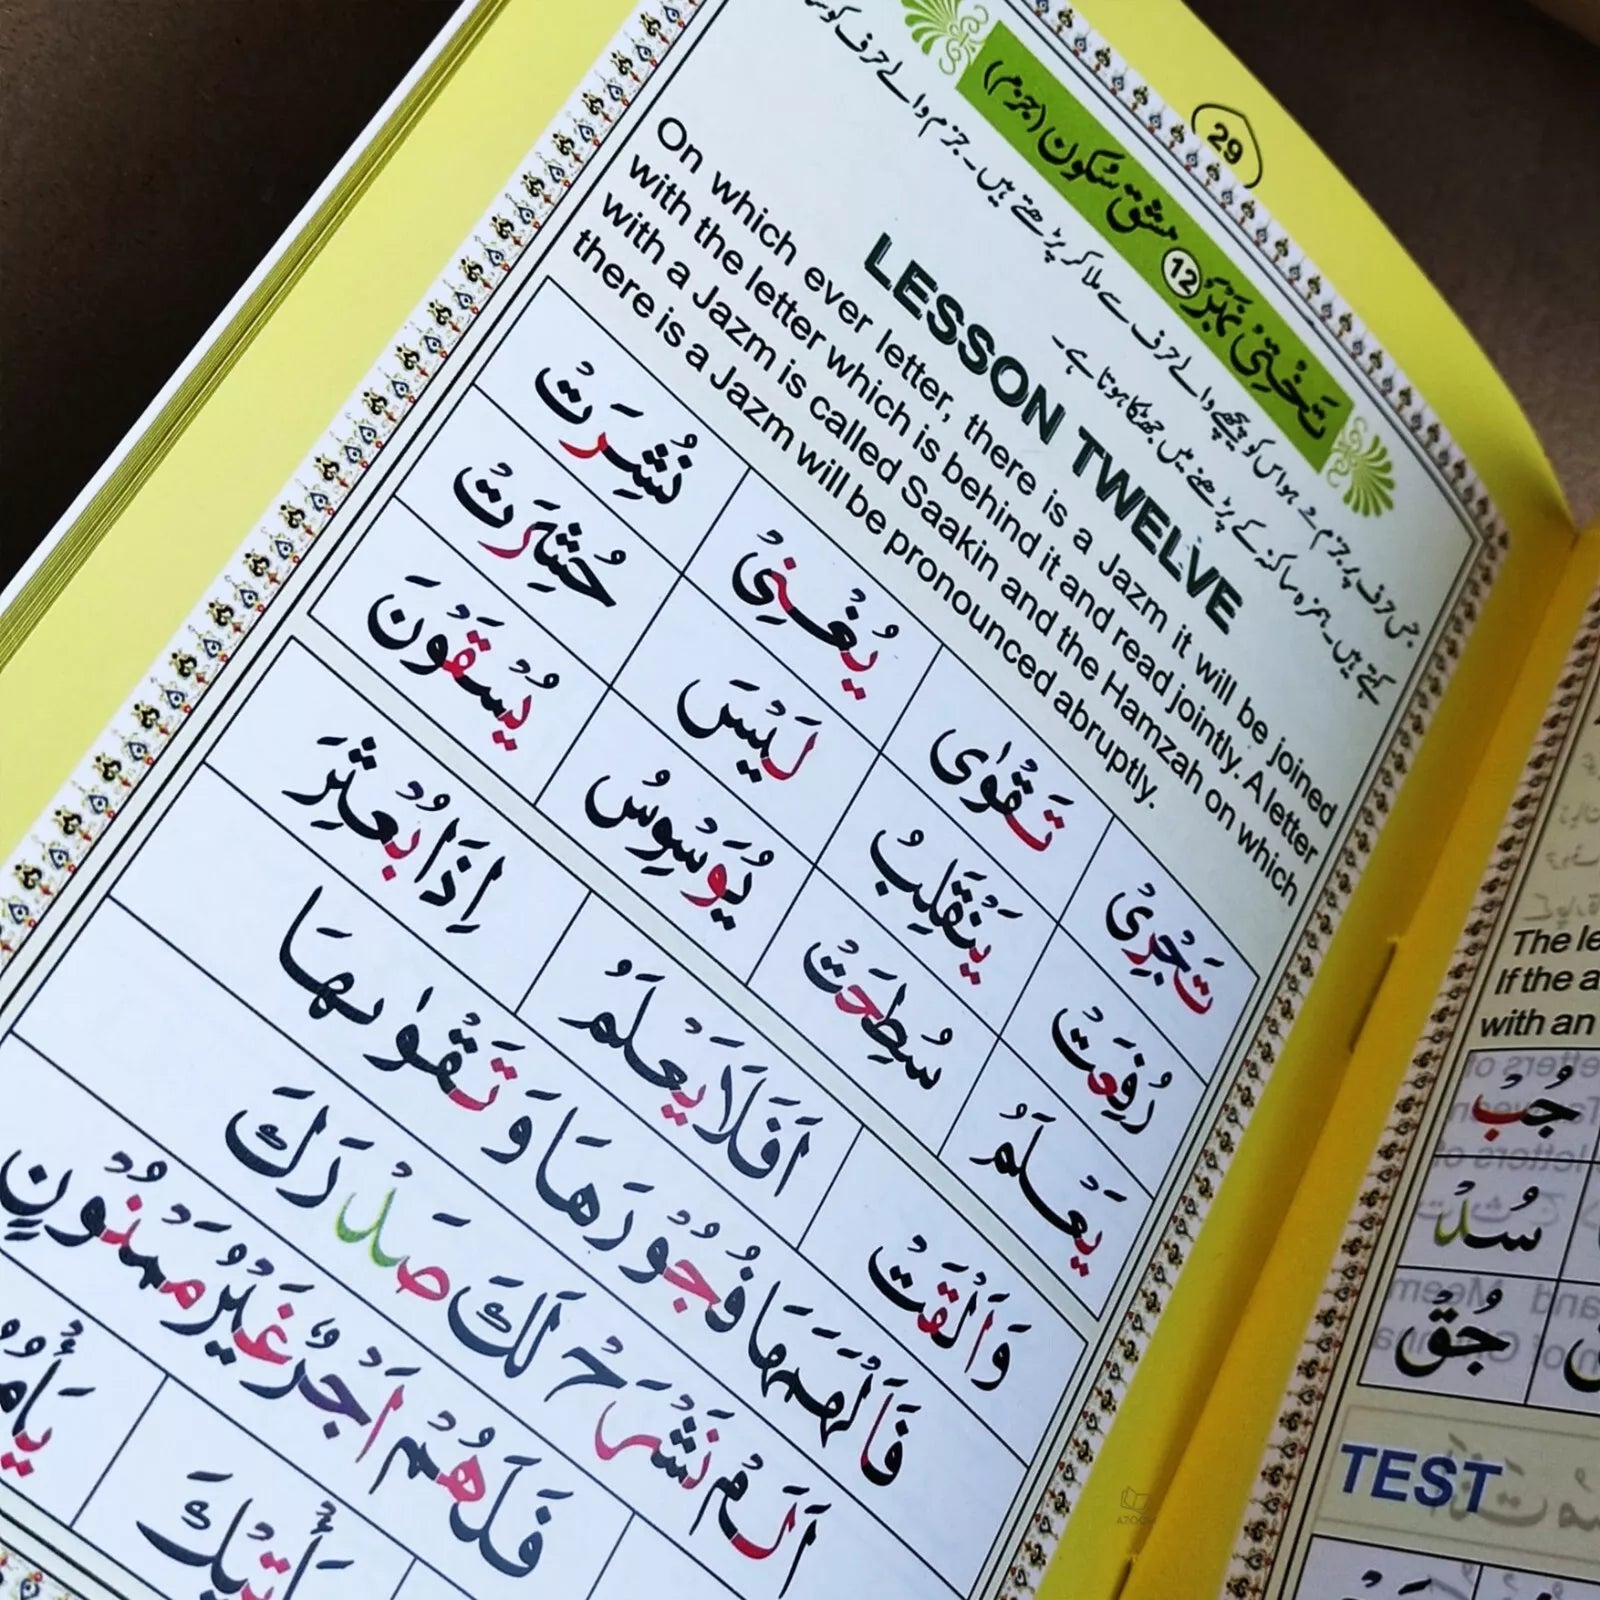 29
تَختی نمبر 12 مشق سکون (جزم)
جس حرف پر جزم ہو اس کو پیچھے والے حرف سے ملا کر پڑھتے ہیں۔ جزم والے حرف کو
کہتے ہیں۔ ہمزہ ساکنہ کے پڑھنے میں جھٹکا ہوتا ہے۔
LESSON TWELVE
On which ever letter, there is a Jazm it will be joined
with the letter which is behind it and read jointly. A letter
with a Jazm is called Saakin and the Hamzah on which
there is a Jazm will be pronounced abruptly.
تَجْرِىْ تَقْوٰى يُغْنِىْ نُشِرَتْ
رُفِعَتْ يَنْقَلِبُ لَيْسَ حُشِرَتْ
يَعْلَمُ سُطِحَتْ يُوَسْوِسُ يُسْقَوْنَ
وَاَلْقَتْ اَفَلَا يَعْلَمُ اِذَا بُعْثِرَ
فَاَلْهَمَهَا فُجُوْرَهَا وَ تَقْوٰىهَا
اَلَمْ نَشْرَحْ لَكَ صَدْرَكَ
فَلَهُمْ اَجْرٌ غَيْرُ مَمْنُوْنٍ
The le
If the a
with an
جُبْ
سُدْ
جُقْ
TEST